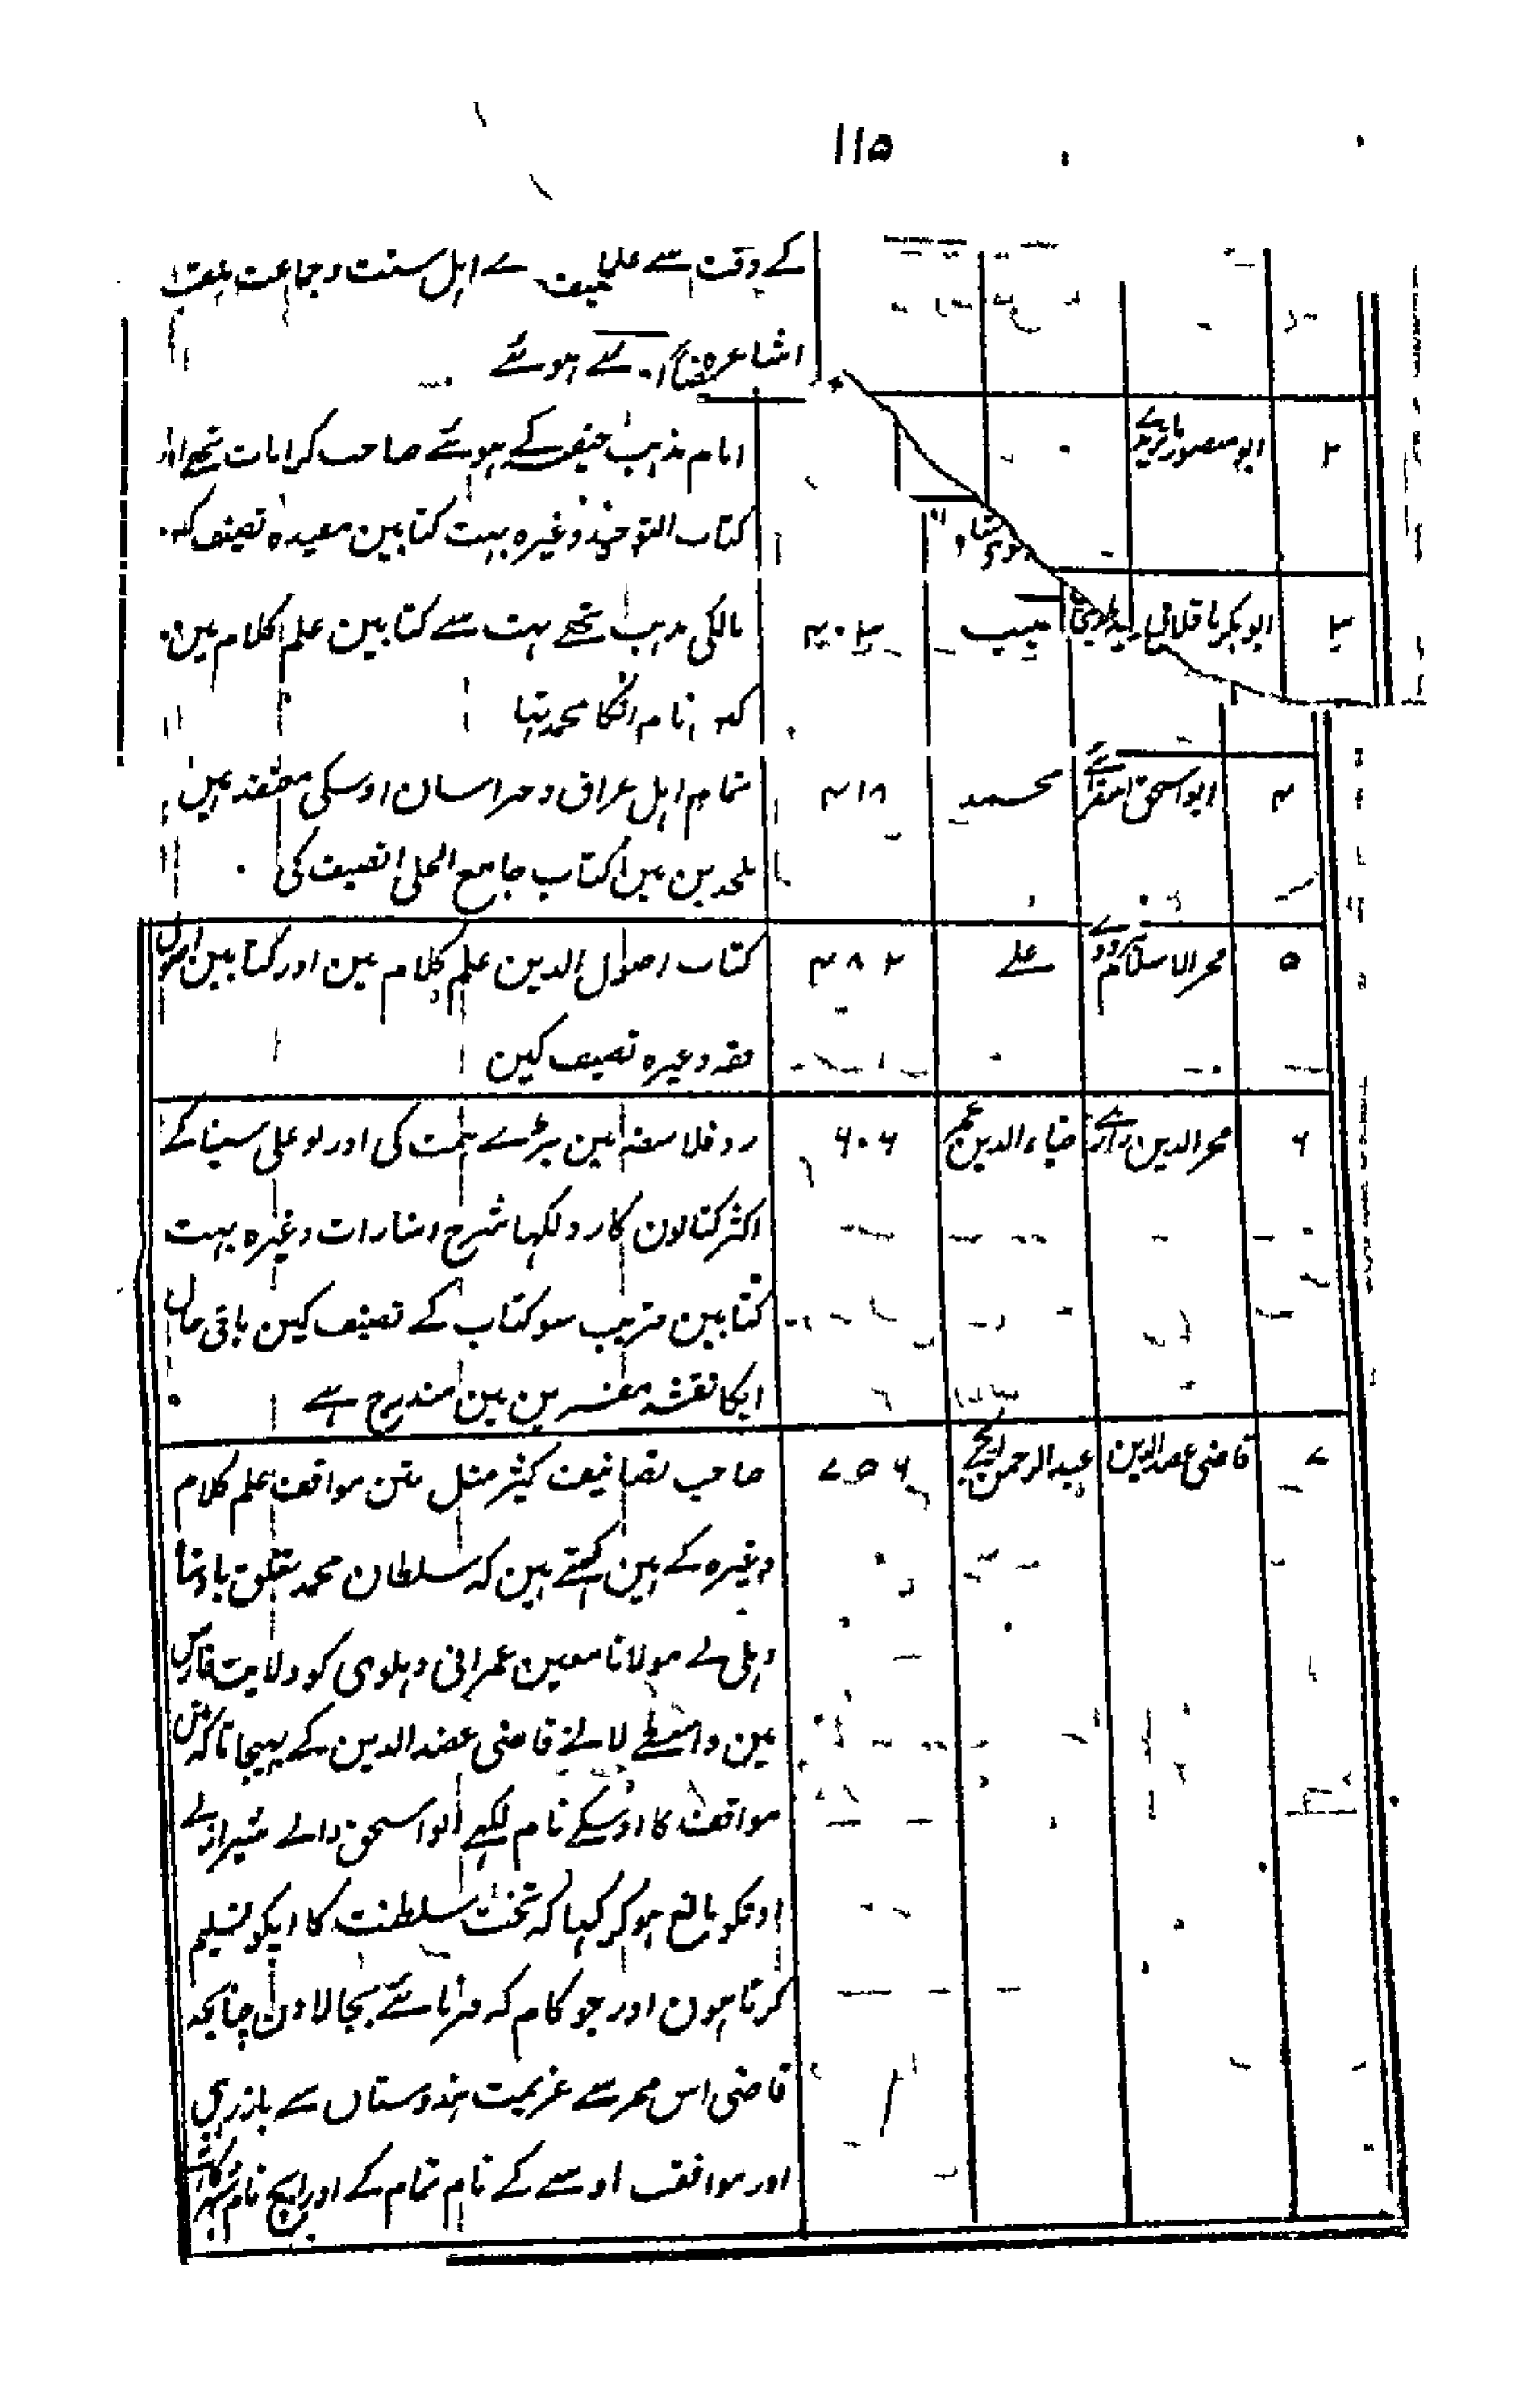 ۱۱۵
کے وقت سے علما اہل سنت وجماعت
اشاعرہ ہوئے
۲ ابو منصور ماتریدے امام مذہب حنیفہ کے ہوئے صاحب کرامات تھے اور
کتاب التوحید وغیرہ بہت کتابین مفیدہ تصنیف
۳ ابوبکر باقلانی ۴۰۳ مالکی مذہب تھے بہت سے کتابین علم کلام مین
نام انکا محمد تہا
۴ ابو اسحق محمد ۴۱۸ تمام اہل عراق و خراسان اوسکی معتقد ہین
ملحدین مین کتاب جامع الحلی تصنیف کی
۵ فخر الاسلام علے ۴۸۲ کتاب اصول الدین علم کلام مین اور کتابین اصول
فقہ وغیرہ تصنیف کین
۶ فخر الدین رازے ضیاء الدین عمر ۶۰۶ رد فلاسفہ مین بڑے ہمت کی اور بو علی سینا کے
اکثر کتابون کا رد لکہا شرح اشارات وغیرہ بہت
کتابین قریب سو کتاب کے تصنیف کین باقی حال
انکا نقشہ مفسرین مین مندرج ہے
۷ قاضی عضد الدین عبد الرحمن ایجے ۷۵۶ صاحب تصانیف کثیر مثل متن مواقف علم کلام
وغیرہ کے ہین کہتے ہین کہ سلطان محمد تغلق بادشاہ
دہلی نے مولانا معین عمرانی دہلوی کو ولایت فارس
مین واسطے لانے قاضی عضد الدین کے بہیجا تاکہ متن
مواقف کا اوسکے نام لکہے ابو اسحق والے شیراز نے
اونکو مانع ہو کر کہا کہ تخت سلطنت کا آپکو تسلیم
کرتا ہون اور جو کام کہ فرمائے بجا لاون چنانچہ
قاضی اس سے عزیمت ہندوستان سے باز رہی
اور مواقف اوسے کے نام تمام کے اور ایج نام شہر کا